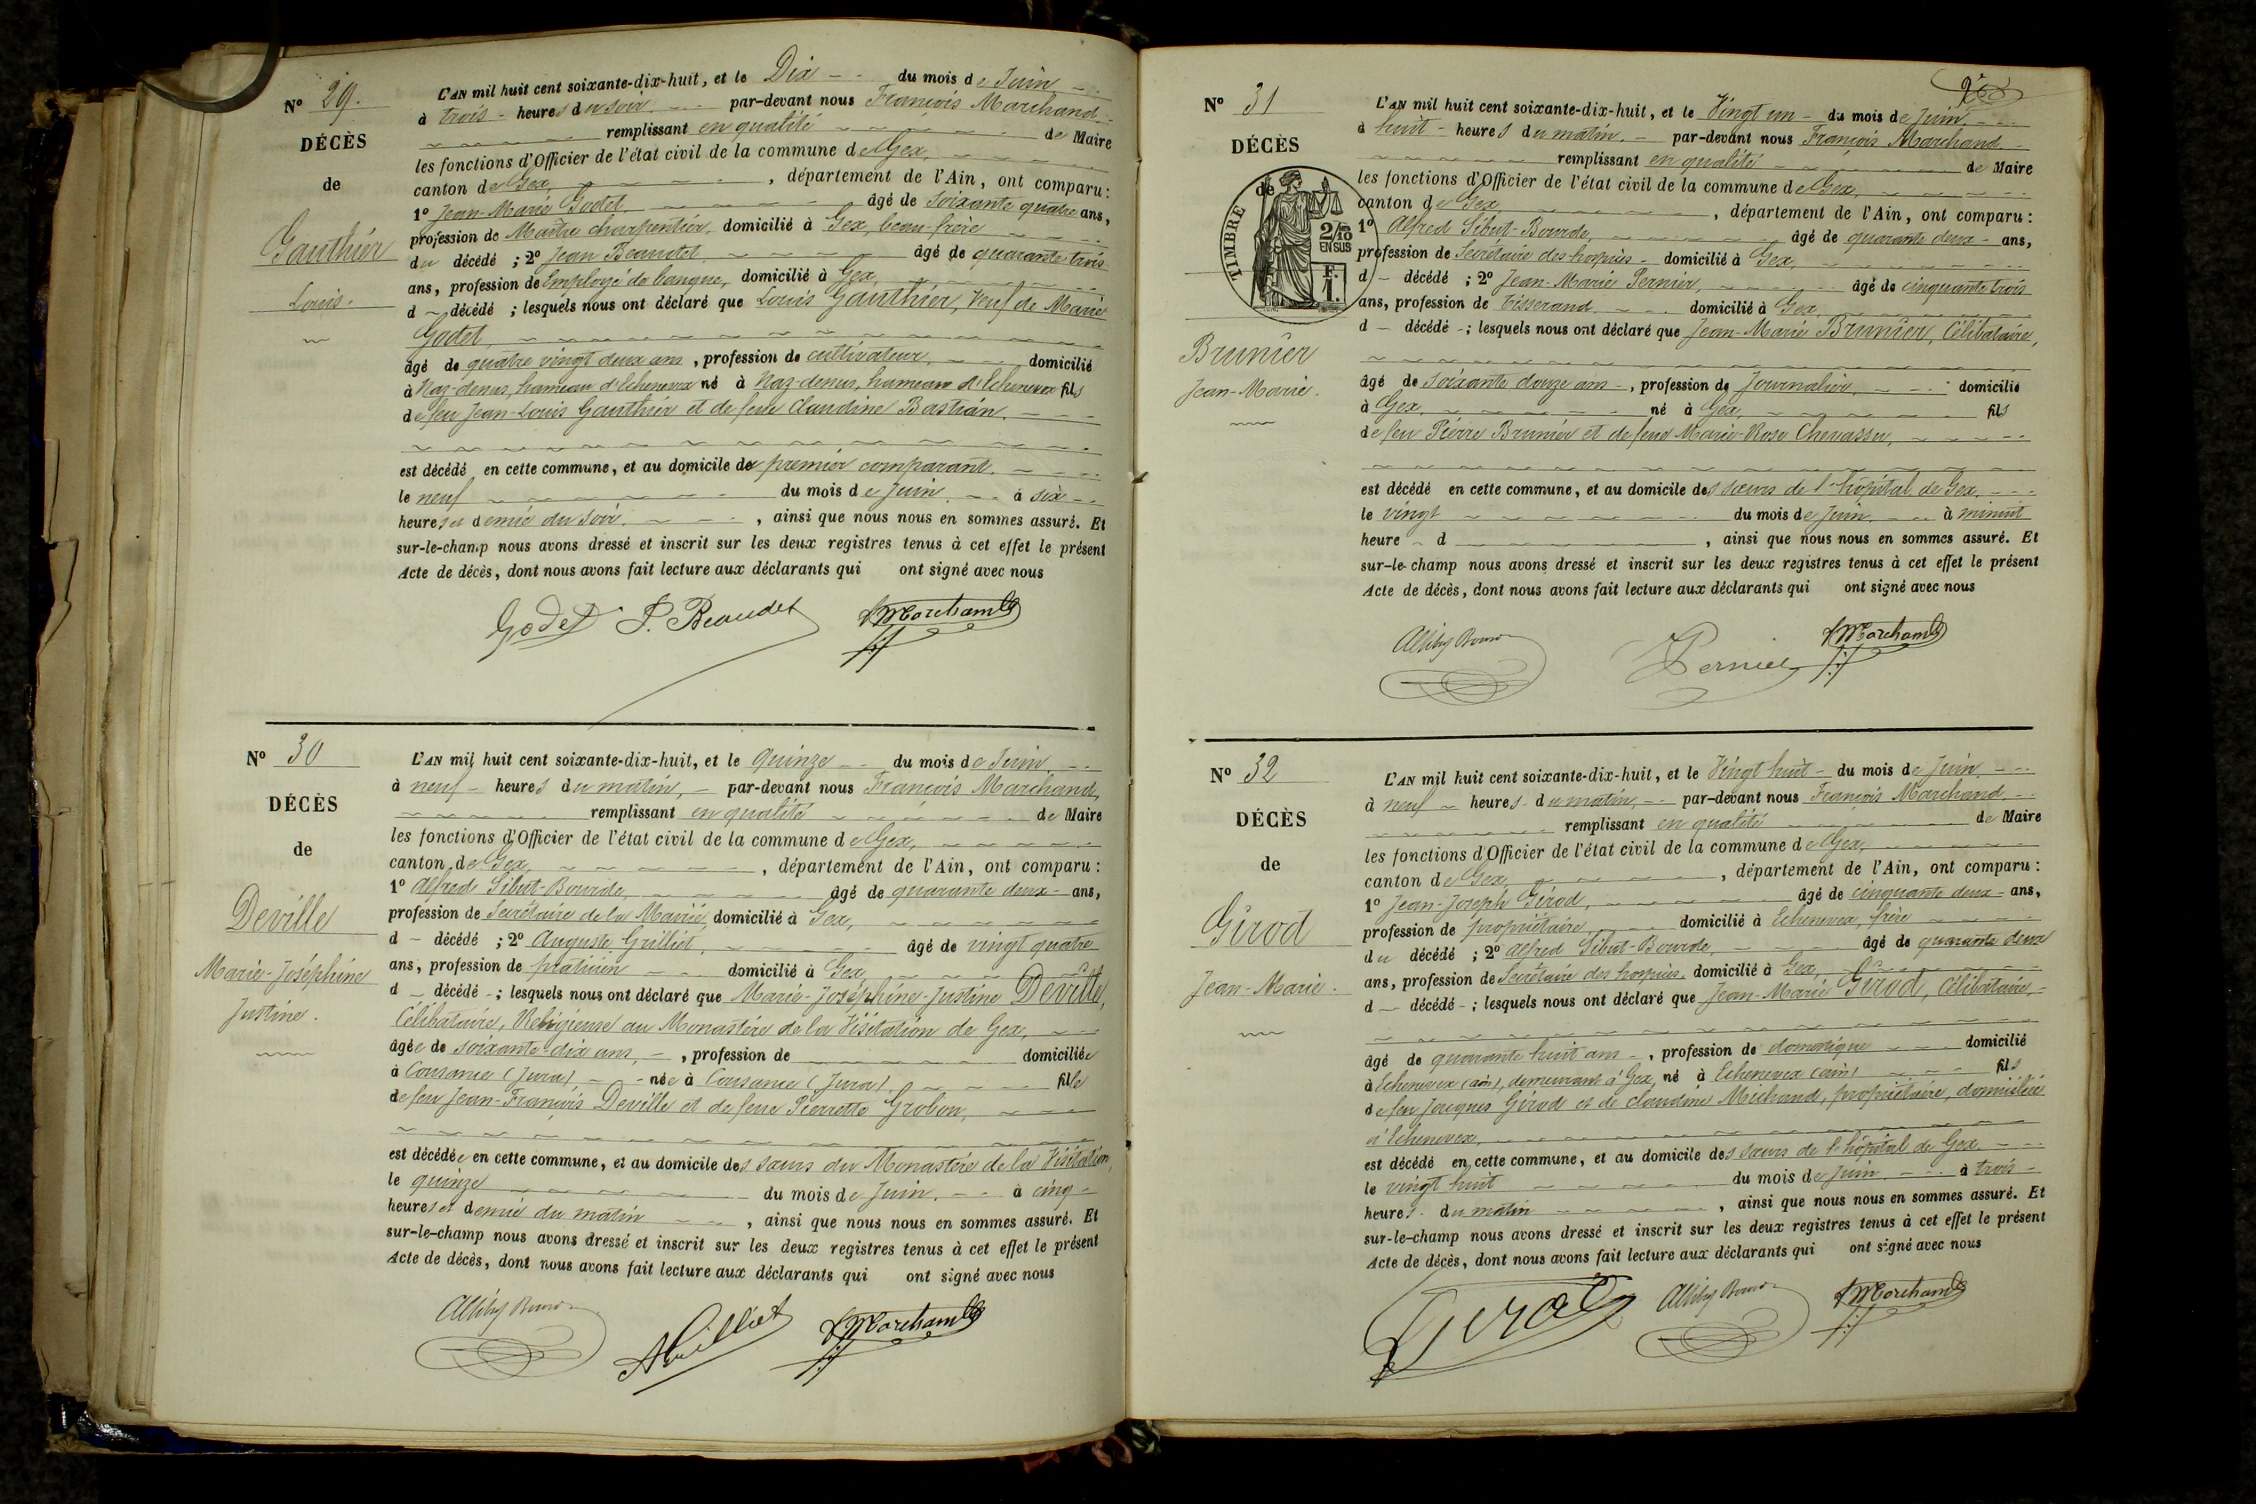 N° 29.
DÉCÈS
de
Gauthier
Louis.
L'AN mil huit cent soixante-dix-huit, et le Dix du mois de Juin
à trois heures du soir par-devant nous François Marchand
remplissant en qualité de Maire
les fonctions d'Officier de l'état civil de la commune de Gex,
canton de Gex, , département de l'Ain, ont comparu :
1° Jean-Marie Godet âgé de soixante quatre ans,
profession de Maître charpentier, domicilié à Gex, beau-frère
du décédé ; 2° Jean Beaudet âgé de quarante trois
ans, profession de Employé de banque, domicilié à Gex,
d décédé ; lesquels nous ont déclaré que Louis Gauthier, Veuf de Marie
Godet,
âgé de quatre vingt deux ans, profession de cultivateur, domicilié
à Naz-dessus, hameau d'Echenevex né à Naz-dessus, hameau d'Echenevex fils
de feu Jean-Louis Gauthier et de feue Claudine Bastian,
est décédé en cette commune, et au domicile du premier comparant.
le neuf du mois de Juin à six
heures et demie du soir. , ainsi que nous nous en sommes assuré. Et
sur-le-champ nous avons dressé et inscrit sur les deux registres tenus à cet effet le présent
Acte de décès, dont nous avons fait lecture aux déclarants qui ont signé avec nous
Godet J. Beaudet Marchand
N° 30
DÉCÈS
de
Deville
Marie-Joséphine
Justine.
L'AN mil huit cent soixante-dix-huit, et le quinze du mois de Juin
à neuf heures du matin, par-devant nous François Marchand,
remplissant en qualité de Maire
les fonctions d'Officier de l'état civil de la commune de Gex,
canton de Gex , département de l'Ain, ont comparu :
1° Alfred Sibut-Bourde, âgé de quarante deux ans,
profession de Secrétaire de la Mairie, domicilié à Gex,
d décédé ; 2° Auguste Grilliet, âgé de vingt quatre
ans, profession de praticien domicilié à Gex,
d décédé ; lesquels nous ont déclaré que Marie-Joséphine-Justine Deville,
Célibataire, Religieuse au Monastère de la Visitation de Gex,
âgée de soixante-dix ans, , profession de domiciliée
à Cousance (Jura) née à Cousance (Jura), fille
de feu Jean-François Deville et de feue Pierrette Grobon,
est décédée en cette commune, et au domicile des sœurs du Monastère de la Visitation,
le quinze du mois de Juin. à cinq
heures et demie du matin , ainsi que nous nous en sommes assuré. Et
sur-le-champ nous avons dressé et inscrit sur les deux registres tenus à cet effet le présent
Acte de décès, dont nous avons fait lecture aux déclarants qui ont signé avec nous
Marchand
N° 31
DÉCÈS
de
TIMBRE
2/10
EN SUS
F.
1.
Brunier
Jean-Marie.
L'AN mil huit cent soixante-dix-huit, et le Vingt un du mois de Juin
à huit heures du matin. par-devant nous François Marchand
remplissant en qualité de Maire
les fonctions d'Officier de l'état civil de la commune de Gex,
canton de Gex , département de l'Ain, ont comparu :
1° Alfred Sibut-Bourde, âgé de quarante deux ans,
profession de Secrétaire des hospices domicilié à Gex,
d décédé ; 2° Jean-Marie Pernier, âgé de cinquante trois
ans, profession de tisserand domicilié à Gex,
d décédé ; lesquels nous ont déclaré que Jean-Marie Brunier, Célibataire,
âgé de soixante douze ans , profession de Journalier, domicilié
à Gex, né à Gex, fils
de feu Pierre Brunier et de feue Marie-Rose Chevassu,
est décédé en cette commune, et au domicile des sœurs de l'hôpital de Gex
le vingt du mois de Juin à minuit
heure d , ainsi que nous nous en sommes assuré. Et
sur-le-champ nous avons dressé et inscrit sur les deux registres tenus à cet effet le présent
Acte de décès, dont nous avons fait lecture aux déclarants qui ont signé avec nous
Pernier Marchand
N° 32
DÉCÈS
de
Girod
Jean-Marie.
L'AN mil huit cent soixante-dix-huit, et le Vingt huit du mois de Juin
à neuf heures du matin, par-devant nous François Marchand
remplissant en qualité de Maire
les fonctions d'Officier de l'état civil de la commune de Gex,
canton de Gex, , département de l'Ain, ont comparu :
1° Jean-Joseph Girod, âgé de cinquante deux ans,
profession de propriétaire domicilié à Echenevex, frère
du décédé ; 2° Alfred Sibut-Bourde, âgé de quarante deux
ans, profession de Secrétaire des hospices, domicilié à Gex,
d décédé ; lesquels nous ont déclaré que Jean-Marie Girod, Célibataire,
âgé de quarante huit ans , profession de domestique domicilié
à Echenevex (ain), demeurant à Gex, né à Echenevex (ain) fils
de feu Jacques Girod et de Claudine Michaud, propriétaire, domiciliée
à Echenevex,
est décédé en cette commune, et au domicile des sœurs de l'hôpital de Gex
le vingt huit du mois de Juin à trois
heures du matin , ainsi que nous nous en sommes assuré. Et
sur-le-champ nous avons dressé et inscrit sur les deux registres tenus à cet effet le présent
Acte de décès, dont nous avons fait lecture aux déclarants qui ont signé avec nous
Girod Marchand